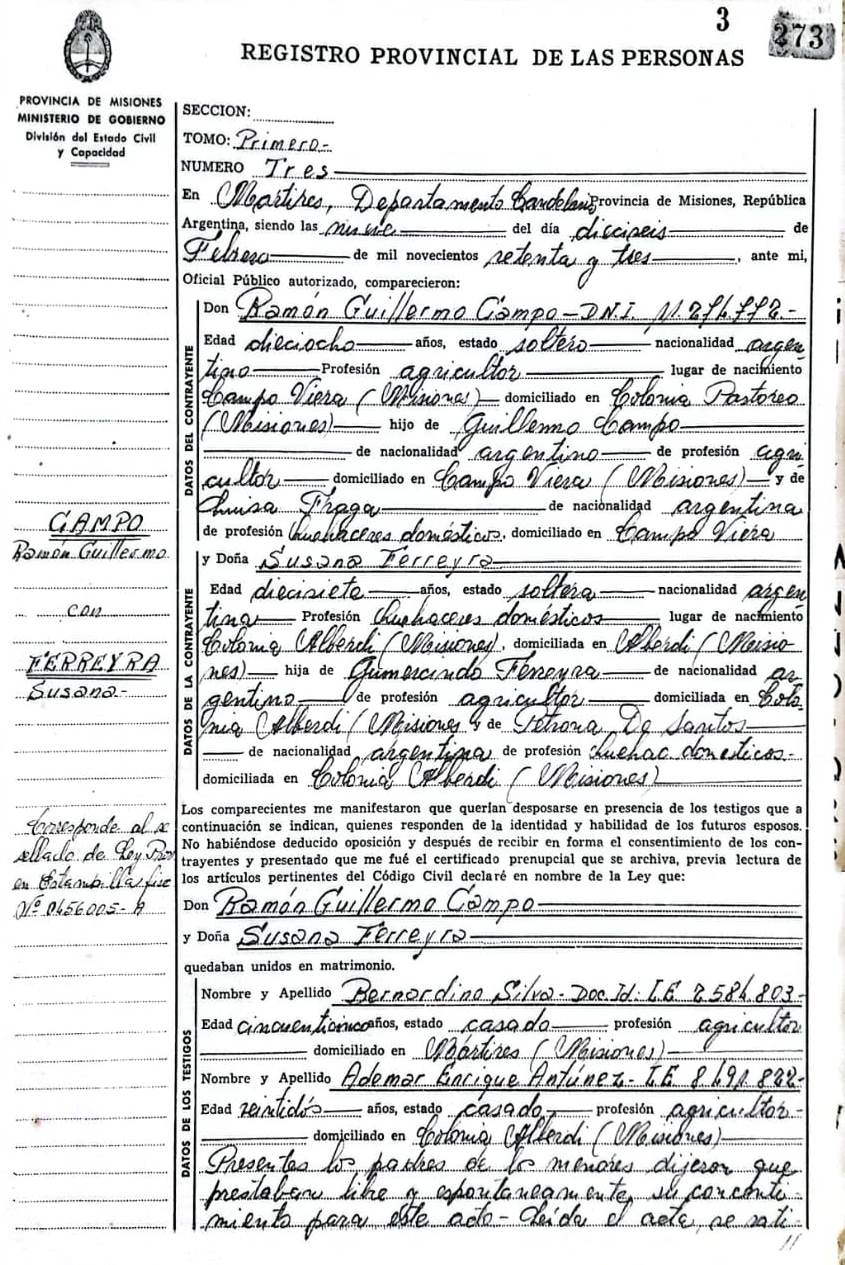 3
273
REGISTRO PROVINCIAL DE LAS PERSONAS
PROVINCIA DE MISIONES
MINISTERIO DE GOBIERNO
División del Estado Civil
y Capacidad
CAMPO
Ramón Guillermo
con
FERREYRA
Susana.-
Corresponde al
sellado de Ley
en Estampillas fisc
Nº 0456005-A
SECCION:
TOMO: Primero.-
NUMERO Tres
En Mártires, Departamento Candelaria Provincia de Misiones, República
Argentina, siendo las nueve del día dieciseis de
Febrero de mil novecientos setenta y tres, ante mi,
Oficial Público autorizado, comparecieron:
DATOS DEL CONTRAYENTE
Don Ramón Guillermo Campo - D.N.I.
Edad dieciocho años, estado soltero nacionalidad argen
tino Profesión agricultor lugar de nacimiento
Campo Viera (Misiones) domiciliado en Colonia Pastoreo
(Misiones) hijo de Guillermo Campo
de nacionalidad argentino de profesión agri
cultor domiciliado en Campo Viera (Misiones) y de
Luisa Fraga de nacionalidad argentina
de profesión Quehaceres domésticos, domiciliado en Campo Viera
DATOS DE LA CONTRAYENTE
y Doña Susana Ferreyra
Edad diecisiete años, estado soltera nacionalidad argen
tina Profesión Quehaceres domésticos lugar de nacimiento
Colonia Alberdi (Misiones), domiciliada en Alberdi (Misio
nes) hija de Gumercindo Ferreyra de nacionalidad ar
gentino de profesión agricultor domiciliada en Colo
nia Alberdi (Misiones y de Petrona De Santos
de nacionalidad argentina de profesión Quehac domesticos.-
domiciliada en Colonia Alberdi (Misiones)
Los comparecientes me manifestaron que querían desposarse en presencia de los testigos que a
continuación se indican, quienes responden de la identidad y habilidad de los futuros esposos.
No habiéndose deducido oposición y después de recibir en forma el consentimiento de los con-
trayentes y presentado que me fué el certificado prenupcial que se archiva, previa lectura de
los artículos pertinentes del Código Civil declaré en nombre de la Ley que:
Don Ramón Guillermo Campo
y Doña Susana Ferreyra
quedaban unidos en matrimonio.
DATOS DE LOS TESTIGOS
Nombre y Apellido Bernardino Silva - Doc. Id: L.E 7.584.803-
Edad cincuenticinco años, estado casado profesión agricultor
domiciliado en Mártires (Misiones)
Nombre y Apellido Ademar Enrique Antúnez - L.E 8.491.822-
Edad veintidós años, estado casado, profesión agricultor -
domiciliado en Colonia Alberdi (Misiones)
Presentes los padres de los menores dijeron que
prestaban libre y espontaneamente su concenti-
miento para este acto - Leída el acta, se rati-
//